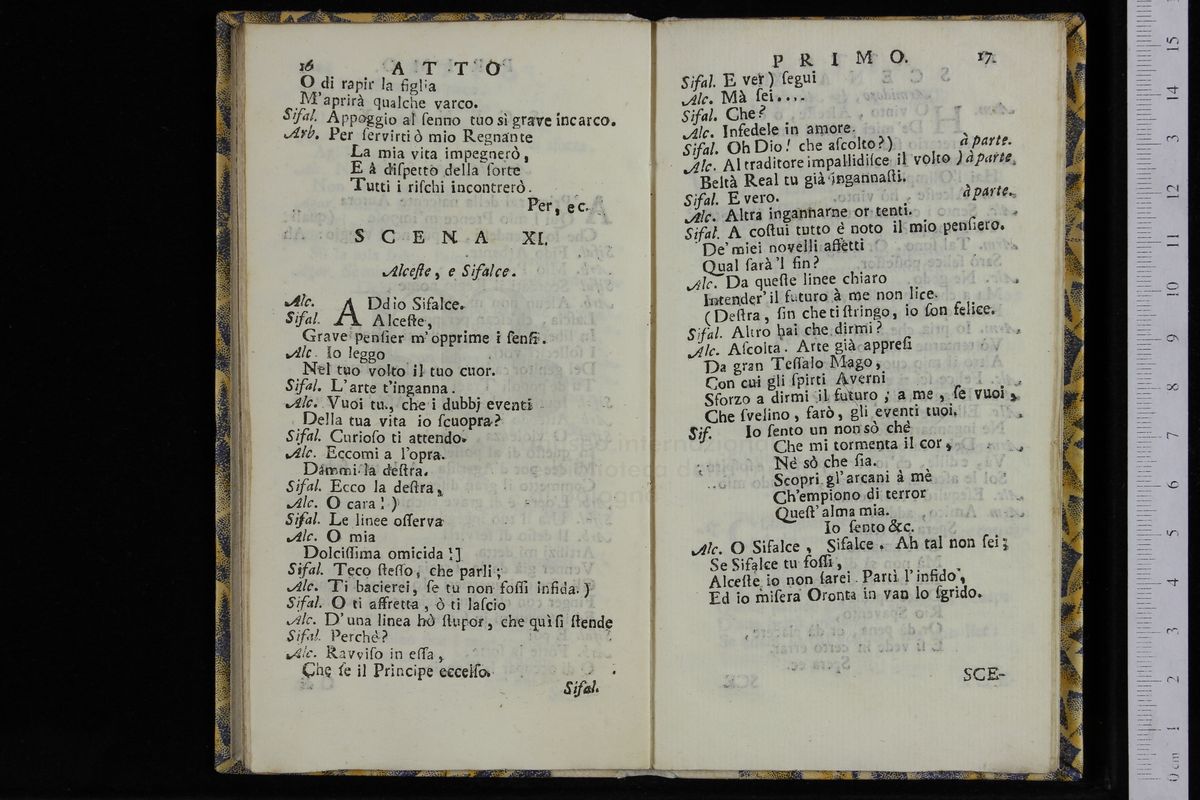 16 ATTO
O di rapir la figlia
M'aprirà qualche varco.
Sifal. Appoggio al ſenno tuo sì grave incarco.
Arb. Per ſervirti ò mio Regnante
La mia vita impegnerò,
E à diſpetto della ſorte
Tutti i riſchi incontrerò.
Per, ec.
SCENA XI.
Alceſte, e Sifalce.
Alc. ADdio Sifalce.
Sifal. Alceſte,
Grave penſier m'opprime i ſenſi.
Alc. Io leggo
Nel tuo volto il tuo cuor.
Sifal. L'arte t'inganna.
Alc. Vuoi tu, che i dubbj eventi
Della tua vita io ſcuopra?
Sifal. Curioſo ti attendo.
Alc. Eccomi a l'opra.
Dammi la deſtra.
Sifal. Ecco la deſtra,
Alc. O cara!)
Sifal. Le linee oſſerva
Alc. O mia
Dolciſſima omicida!]
Sifal. Teco ſteſſo, che parli;
Alc. Ti bacierei, ſe tu non foſſi infida.)
Sifal. O ti affretta, ò ti laſcio
Alc. D'una linea hò ſtupor, che quì ſi ſtende
Sifal. Perchè?
Alc. Ravviſo in eſſa,
Che ſe il Principe eccelſo.
Sifal.
PRIMO. 17.
Sifal. E ver) ſegui
Alc. Mà ſei....
Sifal. Che?
Alc. Infedele in amore.
Sifal. Oh Dio! che aſcolto?) à parte.
Alc. Al traditore impallidiſce il volto) à parte.
Beltà Real tu già ingannaſti.
Sifal. E vero. à parte.
Alc. Altra ingannarne or tenti.
Sifal. A coſtui tutto è noto il mio penſiero.
De' miei novelli affetti
Qual ſarà 'l fin?
Alc. Da queſte linee chiaro
Intender' il futuro à me non lice.
(Deſtra, ſin che ti ſtringo, io ſon felice.
Sifal. Altro hai che dirmi?
Alc. Aſcolta. Arte già appreſi
Da gran Teſſalo Mago,
Con cui gli ſpirti Averni
Sforzo a dirmi il futuro; a me, ſe vuoi,
Che ſvelino, farò, gli eventi tuoi.
Sif. Io ſento un non sò chè
Che mi tormenta il cor,
Nè sò che ſia.
Scopri gl'arcani à mè
Ch'empiono di terror
Queſt' alma mia.
Io ſento &c.
Alc. O Sifalce, Sifalce. Ah tal non ſei;
Se Sifalce tu foſſi,
Alceſte io non ſarei. Partì l'infido,
Ed io miſera Oronta in van lo ſgrido.
SCE-